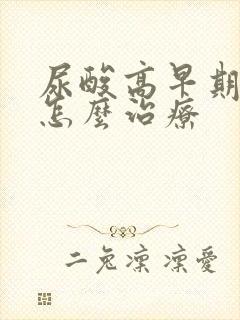 尿酸高早期
怎麼治療
二兔凜凜愛